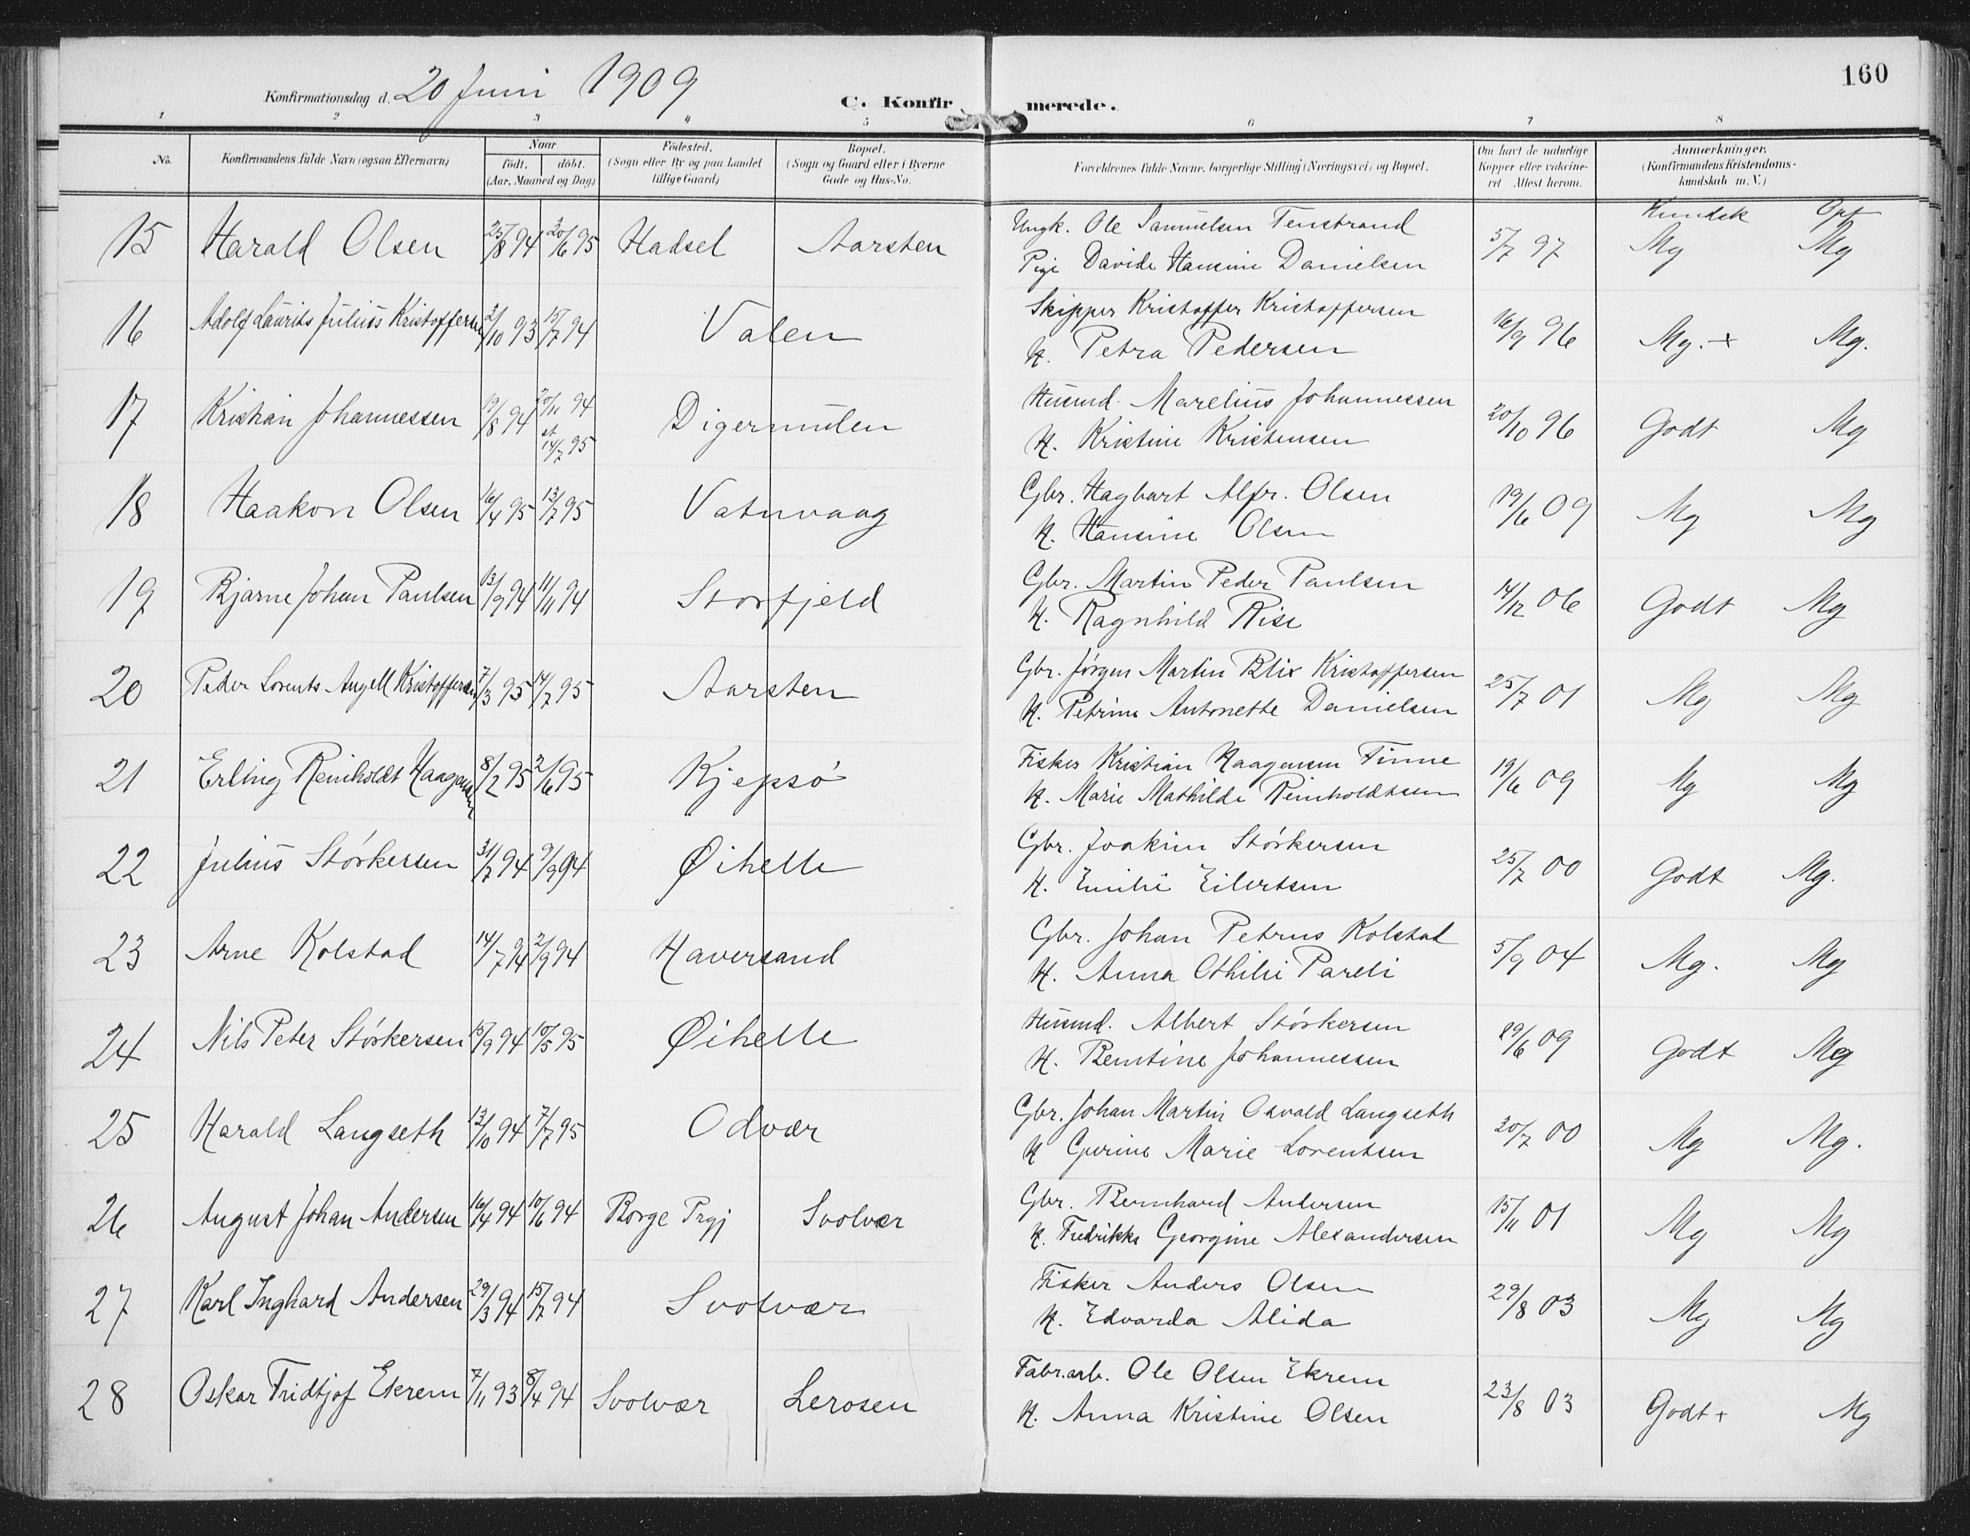 160
Konfirmationsdag d. 20 Juni 1909
C. Konfirmerede.
1 2 3 4 5 6 7 8
No. Konfirmandens fulde Navn (ogsaa Efternavn) Naar født. døbt. (Aar, Maaned og Dag) Fødested. (Sogn eller By og paa Landet tillige Gaard) Bopæl. (Sogn og Gaard eller i Byerne Gade og Hus-No. Forældrenes fulde Navne, borgerlige Stilling (Næringsvei) og Bopæl. Om havt de naturlige Kopper eller vaccineret Attest herom. Anmærkninger. (Konfirmandens Kristendomskundskab m. V.)
Kundsk Opf
15 Harald Olsen 25/8 94 20/6 95 Hadsel Aarsten Ungk. Ole Samuelsen Tenstrand 5/7 97 Mg Mg
Pige Davide Hansine Danielsen
16 Adolf Laurits Julius Kristoffersen 2/10 93 15/7 94 Valen Skipper Kristoffer Kristoffersen 16/9 96 Mg. + Mg.
H. Petra Pedersen
17 Kristian Johannessen 19/8 94 20/11 94 Digermulen Husmd. Marelius Johannessen 20/10 96 Godt Mg
st 14/7 95 H. Kristine Kristensen
18 Haakon Olsen 16/4 95 13/7 95 Vatnvaag Gbr. Hagbart Alfr. Olsen 19/6 09 Mg Mg
H. Hansine Olsen
19 Bjarne Johan Paulsen 13/9 94 11/11 94 Storfjeld Gbr. Martin Peder Paulsen 14/12 06 Godt Mg
H. Ragnhild Rise
20 Peder Lorents Angell Kristoffersen 7/3 95 14/7 95 Aarsten Gbr. Jørgen Martin Blix Kristoffersen 25/7 01 Mg Mg
H. Petrine Antonette Danielsen
21 Erling Reinholdt Haagensen 8/2 95 2/6 95 Kjepsø Fisker Kristian Haagensen Finne 19/6 09 Mg Mg
H. Marie Mathilde Reinholdtsen
22 Julius Størkersen 31/7 94 9/9 94 Øihelle Gbr. Joakim Størkersen 25/7 00 Godt Mg.
H. Emilie Eilertsen
23 Arne Kolstad 14/7 94 2/9 94 Haversand Gbr. Johan Petrus Kolstad 5/9 04 Mg. Mg
H. Anna Othilie Pareli
24 Nils Peter Størkersen 15/9 94 10/5 95 Øihelle Husmd. Albert Størkersen 19/6 09 Godt Mg
H. Berntine Johannessen
25 Harald Langseth 13/10 94 7/7 95 Odvær Gbr. Johan Martin Osvald Langseth 20/7 00 Mg Mg.
H Gurine Marie Lorentsen
26 August Johan Andersen 16/4 94 10/6 94 Borge Prgj Svolvær Gbr. Bernhard Andersen 15/11 01 Mg Mg
H. Fredrikke Georgine Alexandersen
27 Karl Inghard Andersen 29/3 94 15/7 94 Svolvær Fisker Anders Olsen 29/8 03 Mg Mg
H. Edvarda Alida
28 Oskar Fridtjof Ekrem 7/11 93 8/4 94 Svolvær Lerosen Fabr.arb. Ole Olsen Ekrem 23/8 03 Godt + Mg
H. Anna Kristine Olsen